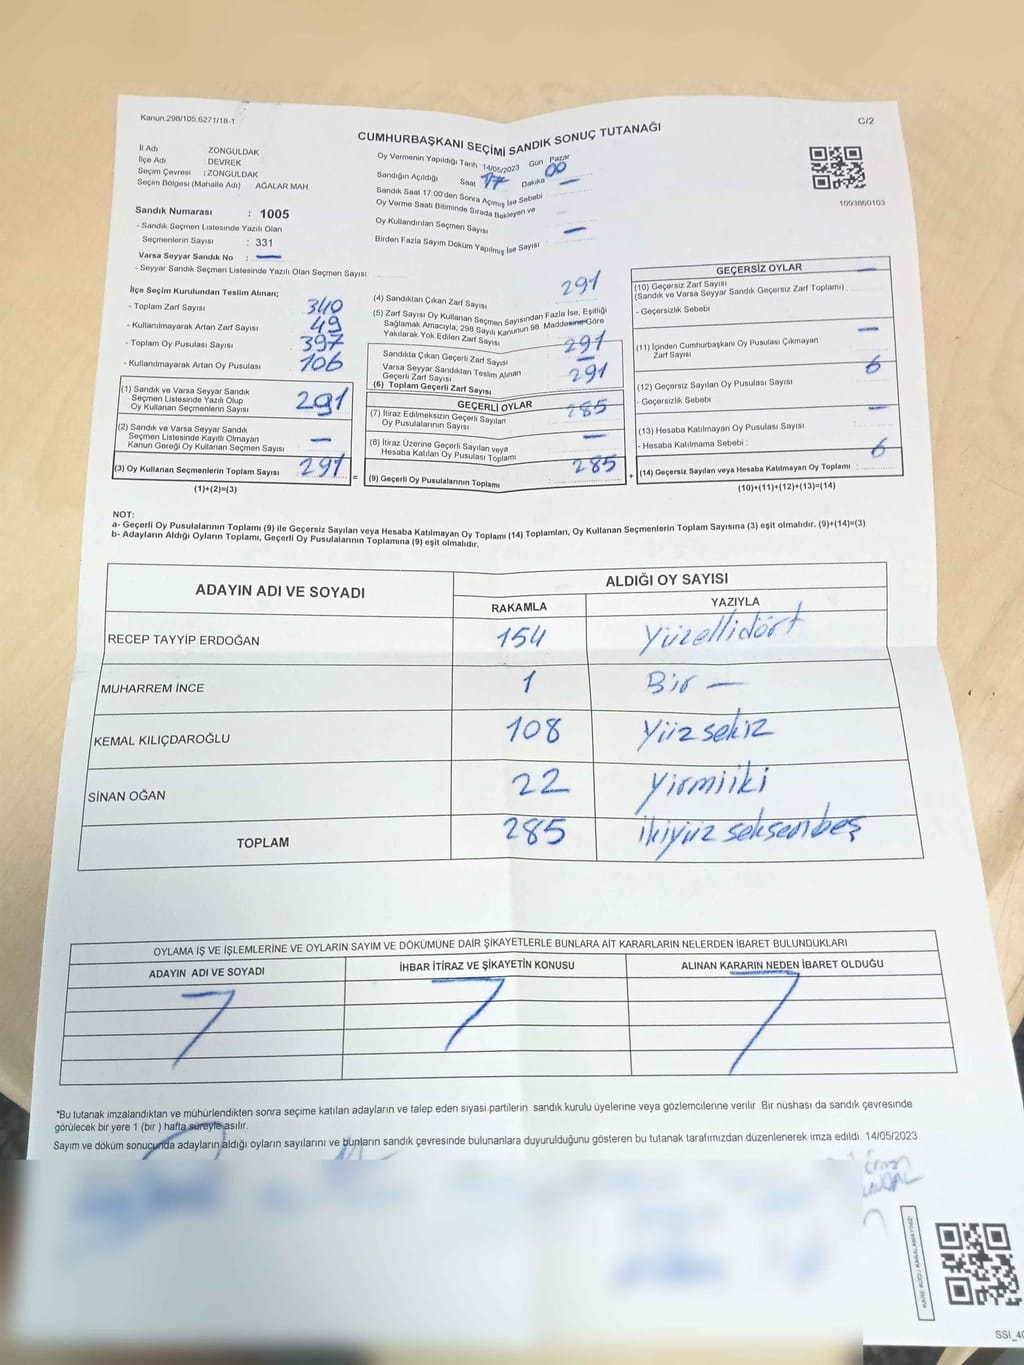 Kanun.298/105,6271/18-1
C/2
CUMHURBAŞKANI SEÇİMİ SANDIK SONUÇ TUTANAĞI
İl Adı ZONGULDAK
İlçe Adı : DEVREK
Seçim Çevresi : ZONGULDAK
Seçim Bölgesi (Mahalle Adı) AĞALAR MAH.
Sandık Numarası : 1005
- Sandık Seçmen Listesinde Yazılı Olan
Seçmenlerin Sayısı : 331
Varsa Seyyar Sandık No : —
- Seyyar Sandık Seçmen Listesinde Yazılı Olan Seçmen Sayısı
Oy Vermenin Yapıldığı Tarih 14/05/2023 Gün Pazar
Sandığın Açıldığı Saat 17 Dakika 00
Sandık Saat 17.00'den Sonra Açımış İse Sebebi —
Oy Verme Saati Bitiminde Sırada Bekleyen ve
Oy Kullandırılan Seçmen Sayısı
Birden Fazla Sayım Döküm Yapılmış İse Sayısı : —
1093860103
İlçe Seçim Kurulundan Teslim Alınan;
- Toplam Zarf Sayısı 340
- Kullanılmayarak Artan Zarf Sayısı 49
- Toplam Oy Pusulası Sayısı 397
- Kullanılmayarak Artan Oy Pusulası 106
(1) Sandık ve Varsa Seyyar Sandık
Seçmen Listesinde Yazılı Olup
Oy Kullanan Seçmenlerin Sayısı 291
(2) Sandık ve Varsa Seyyar Sandık
Seçmen Listesinde Kayıtlı Olmayan
Kanun Gereği Oy Kullanan Seçmen Sayısı —
(3) Oy Kullanan Seçmenlerin Toplam Sayısı 291
(1)+(2)=(3)
(4) Sandıktan Çıkan Zarf Sayısı 291
(5) Zarf Sayısı Oy Kullanan Seçmen Sayısından Fazla İse, Eşitliği
Sağlamak Amacıyla, 298 Sayılı Kanunun 98. Maddesine Göre
Yakılarak Yok Edilen Zarf Sayısı —
Sandıkta Çıkan Geçerli Zarf Sayısı 291
Varsa Seyyar Sandıktan Teslim Alınan
Geçerli Zarf Sayısı —
(6) Toplam Geçerli Zarf Sayısı 291
GEÇERLİ OYLAR
(7) İtiraz Edilmeksizin Geçerli Sayılan
Oy Pusulalarının Sayısı 285
(8) İtiraz Üzerine Geçerli Sayılan veya
Hesaba Katılan Oy Pusulası Toplamı —
= (9) Geçerli Oy Pusulalarının Toplamı 285
GEÇERSİZ OYLAR
(10) Geçersiz Zarf Sayısı —
(Sandık ve Varsa Seyyar Sandık Geçersiz Zarf Toplamı)
- Geçersizlik Sebebi
(11) İçinden Cumhurbaşkanı Oy Pusulası Çıkmayan
Zarf Sayısı —
(12) Geçersiz Sayılan Oy Pusulası Sayısı 6
- Geçersizlik Sebebi :
(13) Hesaba Katılmayan Oy Pusulası Sayısı —
- Hesaba Katılmama Sebebi :
+ (14) Geçersiz Sayılan veya Hesaba Katılmayan Oy Toplamı : 6
(10)+(11)+(12)+(13)=(14)
NOT:
a- Geçerli Oy Pusulalarının Toplamı (9) ile Geçersiz Sayılan veya Hesaba Katılmayan Oy Toplamı (14) Toplamları, Oy Kullanan Seçmenlerin Toplam Sayısına (3) eşit olmalıdır. (9)+(14)=(3)
b- Adayların Aldığı Oyların Toplamı, Geçerli Oy Pusulalarının Toplamına (9) eşit olmalıdır.
ADAYIN ADI VE SOYADI ALDIĞI OY SAYISI
RAKAMLA YAZIYLA
RECEP TAYYİP ERDOĞAN 154 Yüzellidört
MUHARREM İNCE 1 Bir —
KEMAL KILIÇDAROĞLU 108 Yüzsekiz
SİNAN OĞAN 22 Yirmiiki
TOPLAM 285 ikiyüz seksenbeş
OYLAMA İŞ VE İŞLEMLERİNE VE OYLARIN SAYIM VE DÖKÜMÜNE DAİR ŞİKAYETLERLE BUNLARA AİT KARARLARIN NELERDEN İBARET BULUNDUKLARI
ADAYIN ADI VE SOYADI İHBAR İTİRAZ VE ŞİKAYETİN KONUSU ALINAN KARARIN NEDEN İBARET OLDUĞU
*Bu tutanak imzalandıktan ve mühürlendikten sonra seçime katılan adayların ve talep eden siyasi partilerin sandık kurulu üyelerine veya gözlemcilerine verilir. Bir nüshası da sandık çevresinde
görülecek bir yere 1 (bir ) hafta süreyle asılır.
Sayım ve döküm sonucunda adayların aldığı oyların sayılarını ve bunların sandık çevresinde bulunanlara duyurulduğunu gösteren bu tutanak tarafımızdan düzenlenerek imza edildi. 14/05/2023
KARE KODU KARALAMAYINIZ